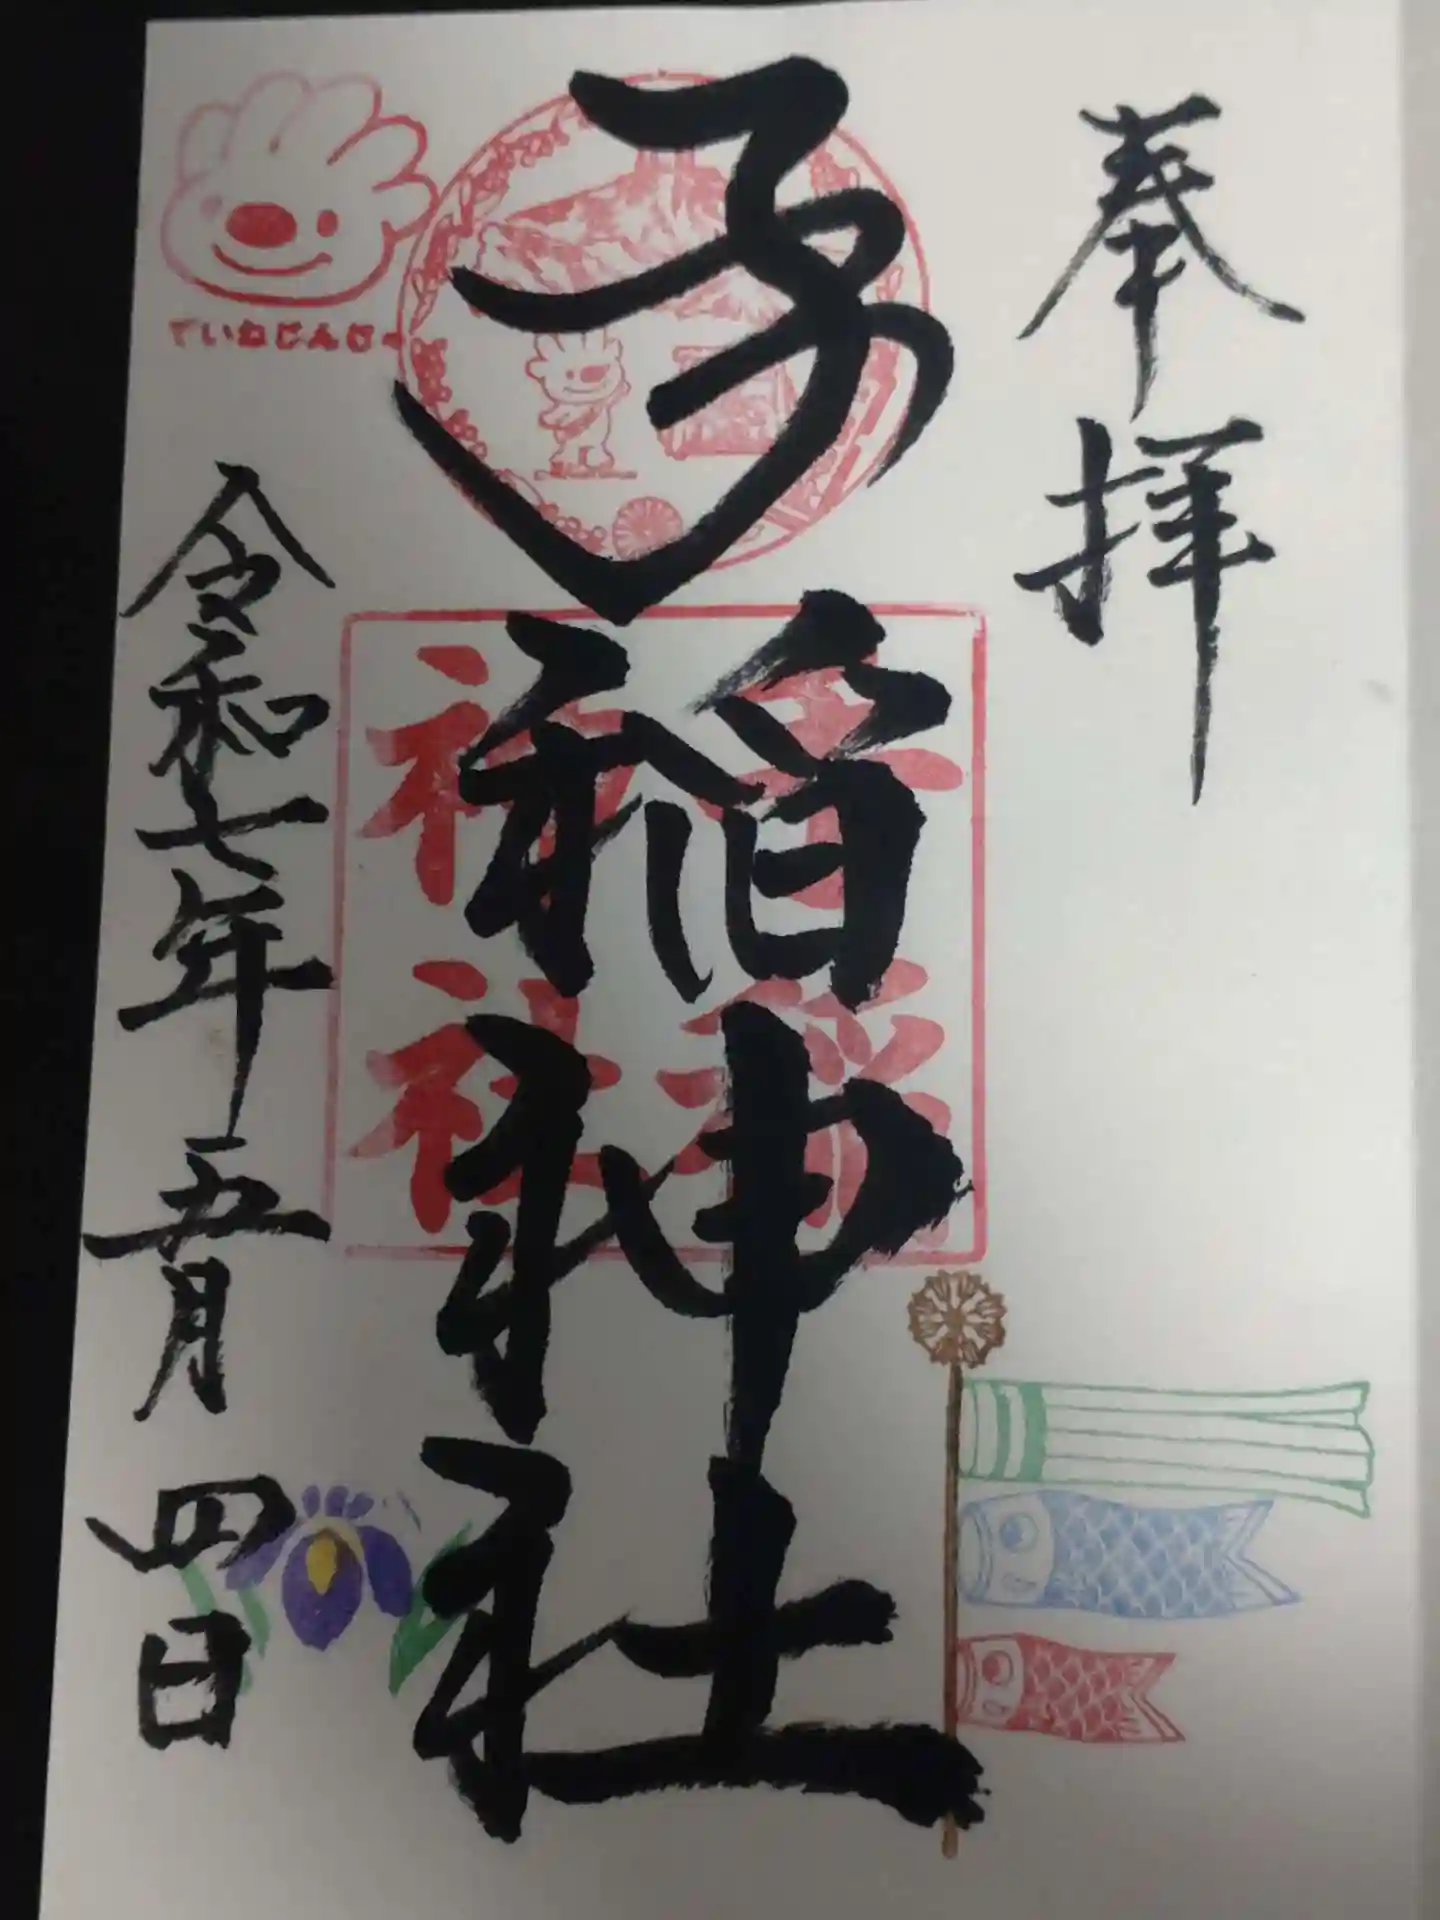 奉拝
手稲神社
手稲
神社
ていねじんじゃー
令和七年五月四日